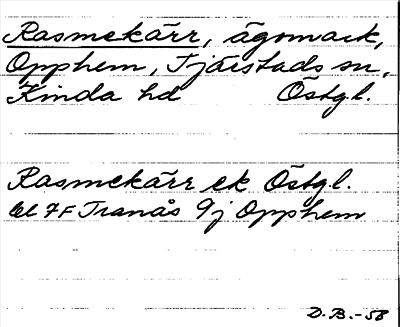 Rasmekärr, ägomark,
Opphem, Tjärstads sn,
Kinda hd Östgl.
Rasmekärr ek Östgl.
bl 7F Tranås 9j Opphem
D.B.-58